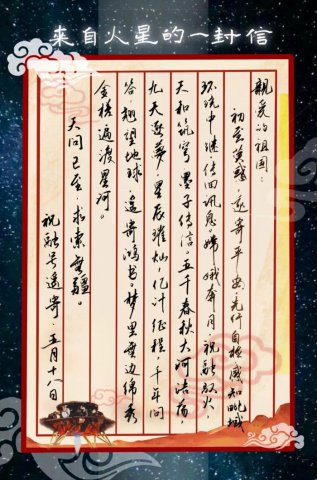 来自火星的一封信
親爱的祖国：
初至荧惑，遥寄平安。先行自检感知毗域
环绕中继，传回讯息。嫦娥奔月，祝融取火
天和筑穹，墨子传信。五千春秋大河浩荡，
九天逐梦，星辰璀灿，亿计征程，千年问
答，翘望地球，遥寄鸿书。梦里云边绵秀
金槎遍渡星河。
天问已至 求索无疆。
祝融号遥寄·五月十八日